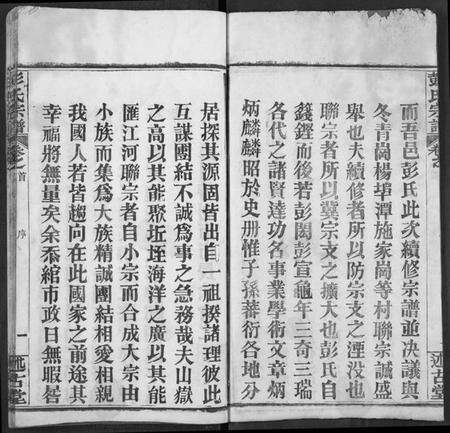 彭氏宗譜
卷之
述古堂
而吾邑彭氏此次續修宗譜並决議與
冬青崗楊埠潭施家崗等村聯宗誠盛
舉也夫續修者所以防宗支之湮没也
聯宗者所以冀宗文之擴大也彭氏自
籛鏗而後若彭閎彭宣龜年三奇三瑞
各代之諸賢達功名事業學術文章炳
炳麟麟昭於史册惟子孫蕃衍各地分
居探其源固皆出自一祖揆諸理彼此
互謀團結不誠爲事之急務哉夫山嶽
之高以其能聚坵垤海洋之廣以其能
匯江河聯宗者自小宗而合成大宗由
小族而集爲大族精誠團結相愛相親
我國人若皆趨向在此國家之前途其
幸福將無量矣余忝綰市政日無暇晷
彭氏宗譜
卷之首
序
一
述古堂